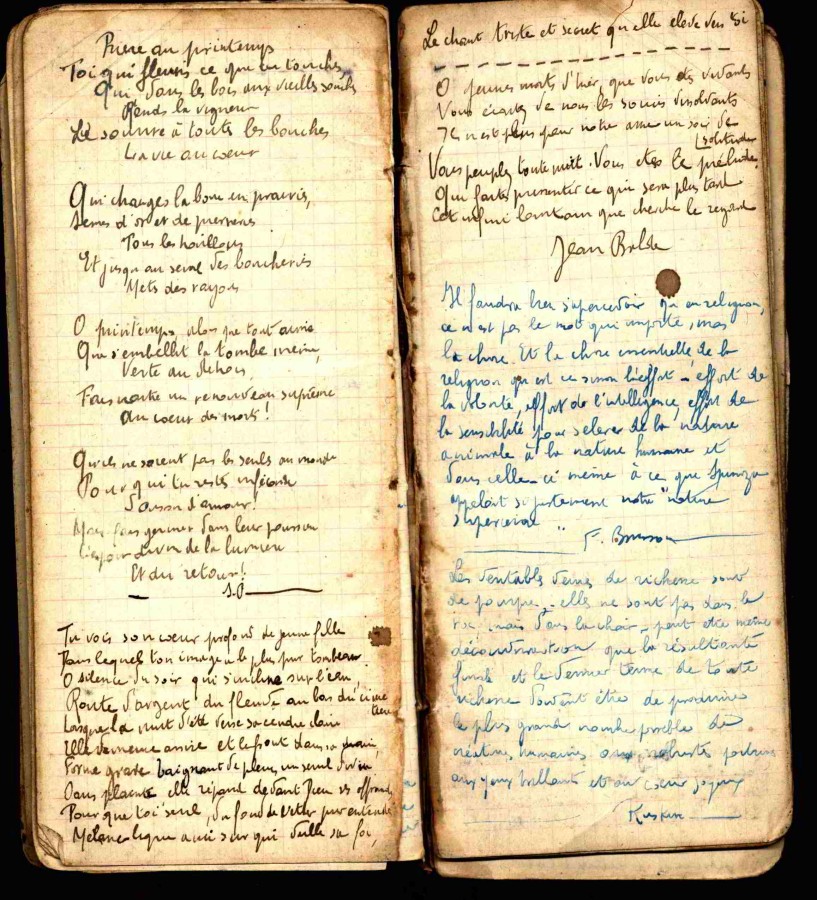 Prière au printemps
Toi qui fleuris ce que tu touches,
Qui dans les bois aux vieilles souches
Rends la vigueur
Le sourire à toutes les bouches
La vie au cœur
Qui changes la boue en prairies,
Sèmes d'or et de pierreries
Tous les haillons
Et jusqu'au seuil des boucheries
Mets des rayons
O printemps, alors que tout aime
Que s'embellit la tombe même,
Verte au dehors,
Fais naître un renouveau suprême
Au cœur des morts !
Qu'ils ne soient pas les seuls au monde
Pour qui tu restes inféconde
Saison d'amour !
Mais fais germer dans leur poussière
L'espoir divin de la lumière
Et du retour !
S.P
Tu vois son cœur profond de jeune fille
Dans lequel ton image a le plus pur tombeau.
O silence du soir qui s'incline sur l'eau,
Route d'argent du fleuve au bas du cime
tière
Lorsque la nuit d'été verse sa cendre claire
Elle demeure assise et le front dans sa main,
Forme grave baignant de pleurs un seuil divin
Sans plainte elle répand devant Dieu ses offrandes
Pour que toi seul, du fond de l'éther pur entendes
Mélancolique ami sur qui veille sa foi,
Le chant triste et secret qu'elle élève vers toi
O jeunes morts d'hier, que vous êtes vivants
Vous écartez de nous les soucis dissolvants
Il n'est plus pour notre âme un soir de
solitude
Vous peuplez toute nuit. Vous êtes le prélude,
Qui fait pressentir ce qui sera plus tard
Cet infini lointain que cherche le regard
Jean
Il faudra bien s'apercevoir qu'en religion,
ce n'est pas le mot qui importe, mais
la chose. Et la chose essentielle de la
religion qu'est-ce sinon l'effort - effort de
la volonté, effort de l'intelligence, effort de
la sensibilité pour s'élever de la nature
animale à la nature humaine et
dans celle-ci même à ce que Spinoza
appelait si justement notre "nature
supérieure"
F. Buisson
Les véritables veines de richesse sont
de pourpre - elles ne sont pas dans le
roc, mais dans la chair, peut-être même
découvrira-t-on que la résultante
finale et le dernier terme de toute
richesse doivent être de produire
le plus grand nombre possible de
créatures humaines aux robustes poitrines
aux yeux brillants et au cœur joyeux
Ruskin